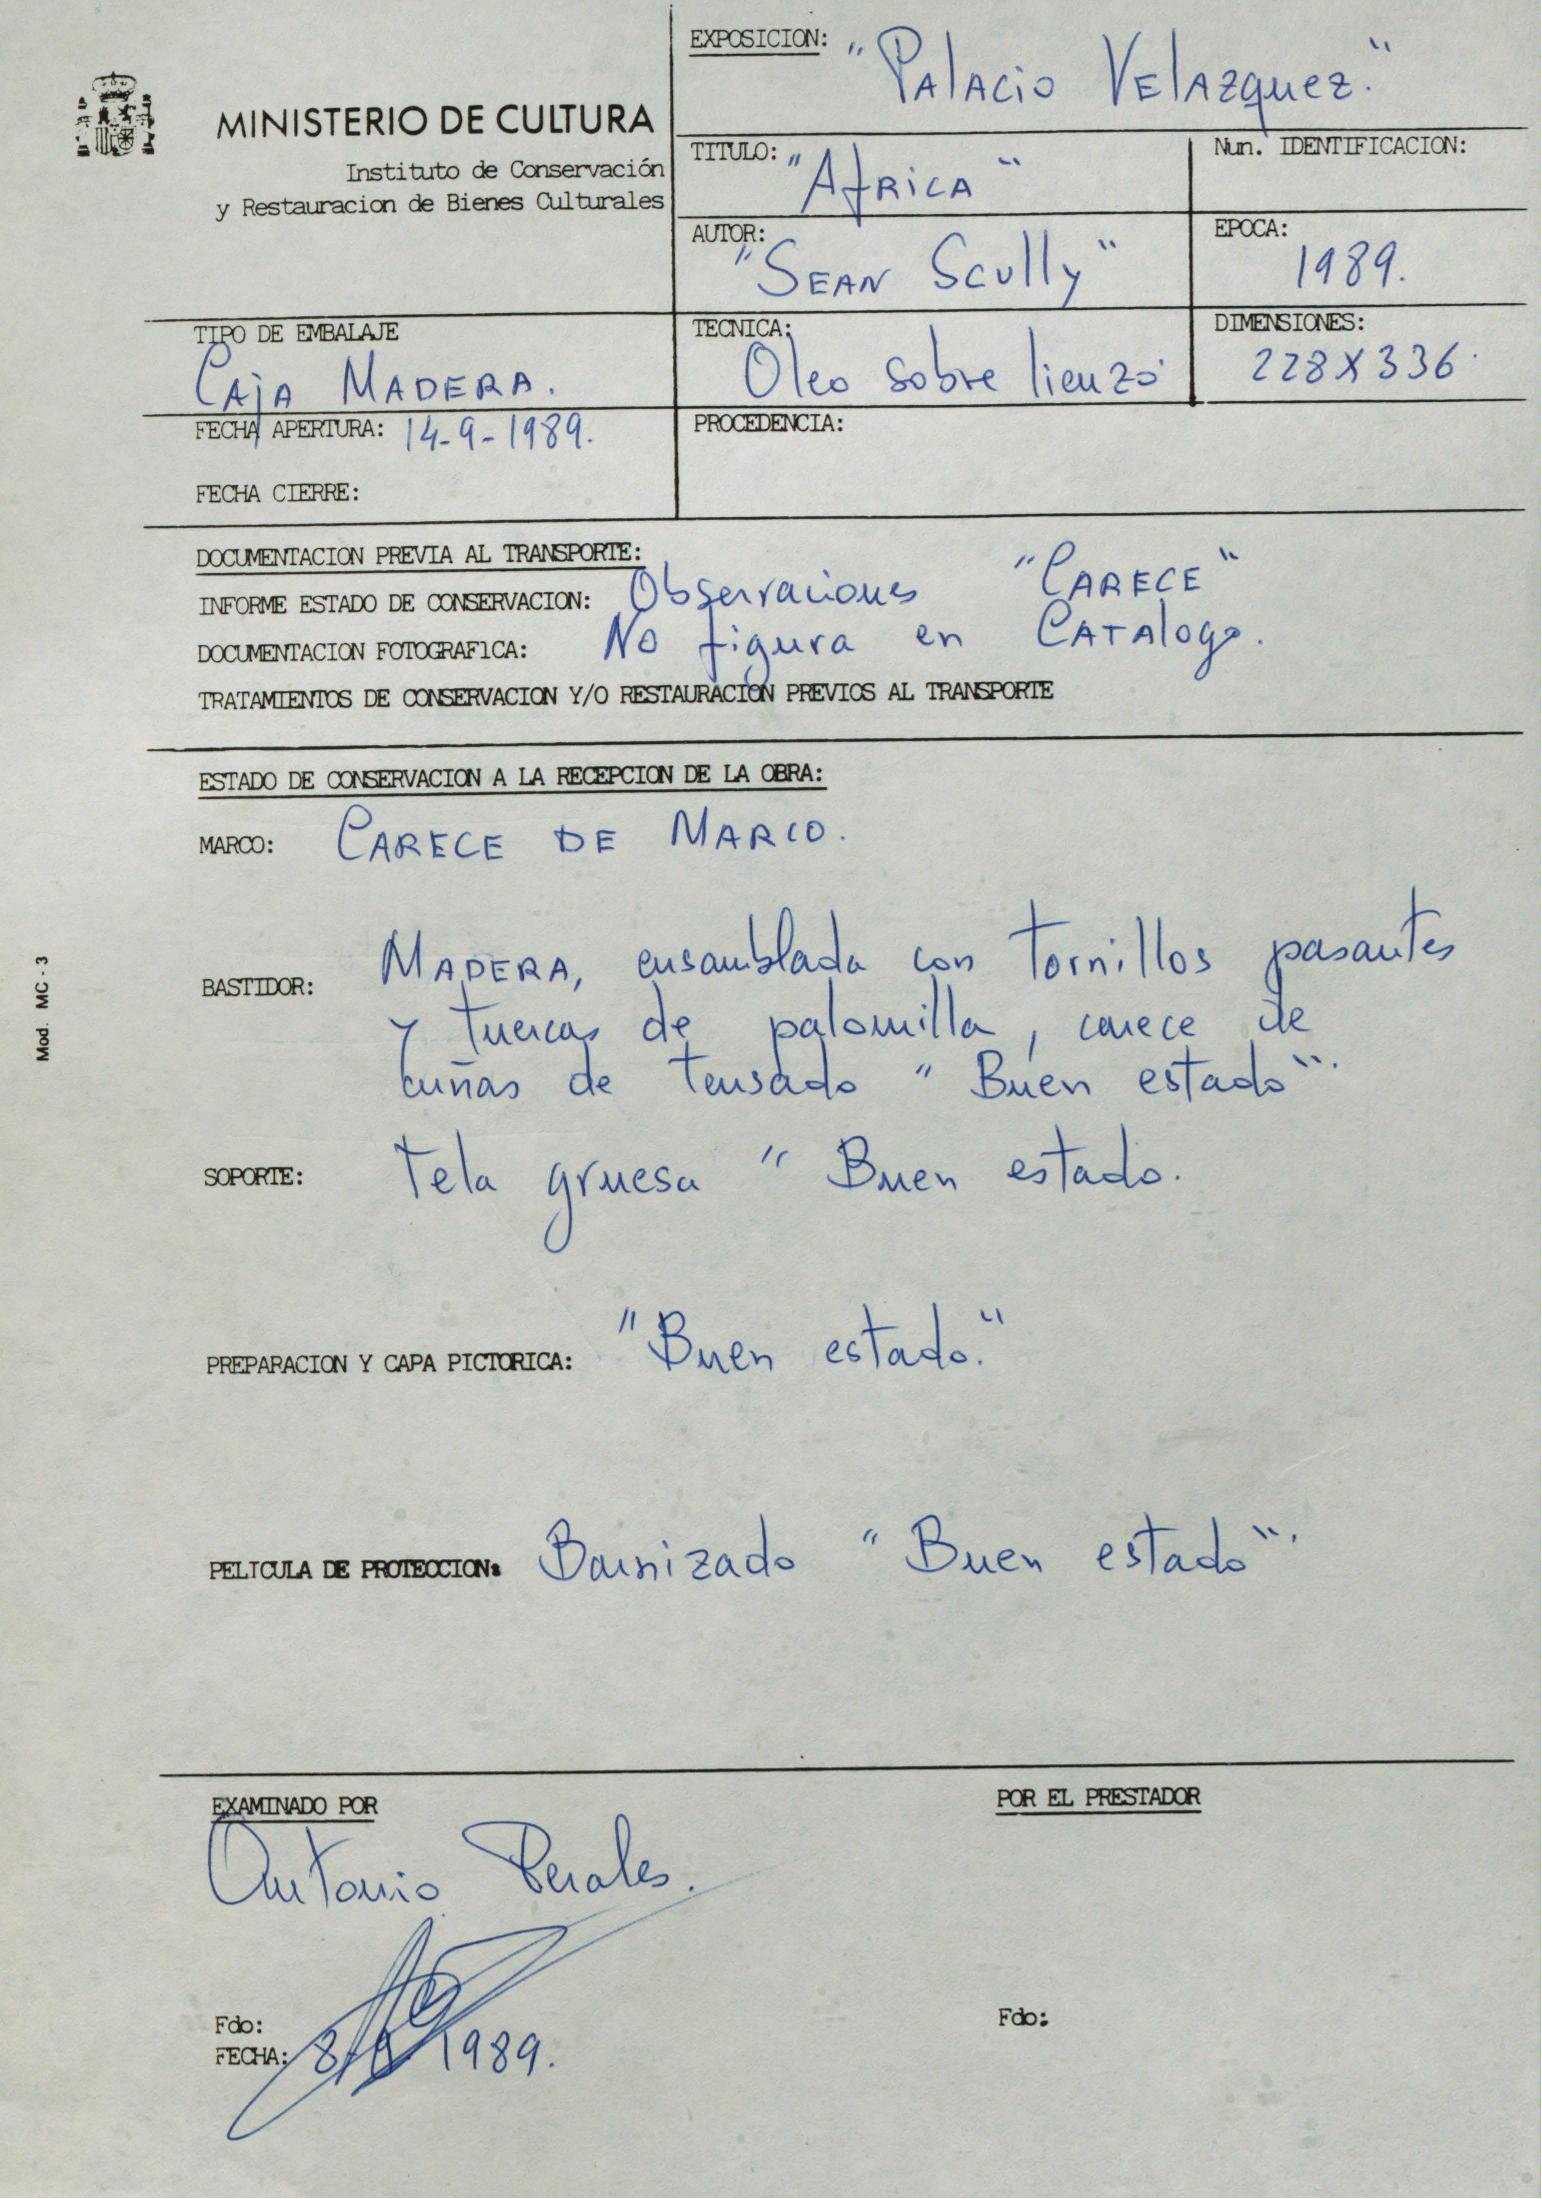 EXPOSICION: "Palacio Velazquez."
MINISTERIO DE CULTURA
Instituto de Conservación
y Restauracion de Bienes Culturales
TITULO: "Africa"
Nun. IDENTIFICACION:
AUTOR: "Sean Scully"
EPOCA: 1989.
TIPO DE EMBALAJE
Caja Madera.
TECNICA: Oleo sobre lienzo
DIMENSIONES: 228X336
FECHA APERTURA: 14-9-1989.
PROCEDENCIA:
FECHA CIERRE:
DOCUMENTACION PREVIA AL TRANSPORTE:
INFORME ESTADO DE CONSERVACION: Observaciones "Carece"
DOCUMENTACION FOTOGRAFICA: No figura en Catalogo.
TRATAMIENTOS DE CONSERVACION Y/O RESTAURACION PREVIOS AL TRANSPORTE
ESTADO DE CONSERVACION A LA RECEPCION DE LA OBRA:
MARCO: Carece de Marco.
BASTIDOR: Madera, ensamblada con tornillos pasantes
y tuercas de palomilla, carece de
cuñas de tensado "Buen estado".
SOPORTE: Tela gruesa " Buen estado.
PREPARACION Y CAPA PICTORICA: "Buen estado."
PELICULA DE PROTECCION: Barnizado "Buen estado".
Mod. MC - 3
EXAMINADO POR
POR EL PRESTADOR
Antonio Perales.
Fdo:
Fdo:
FECHA: 1989.